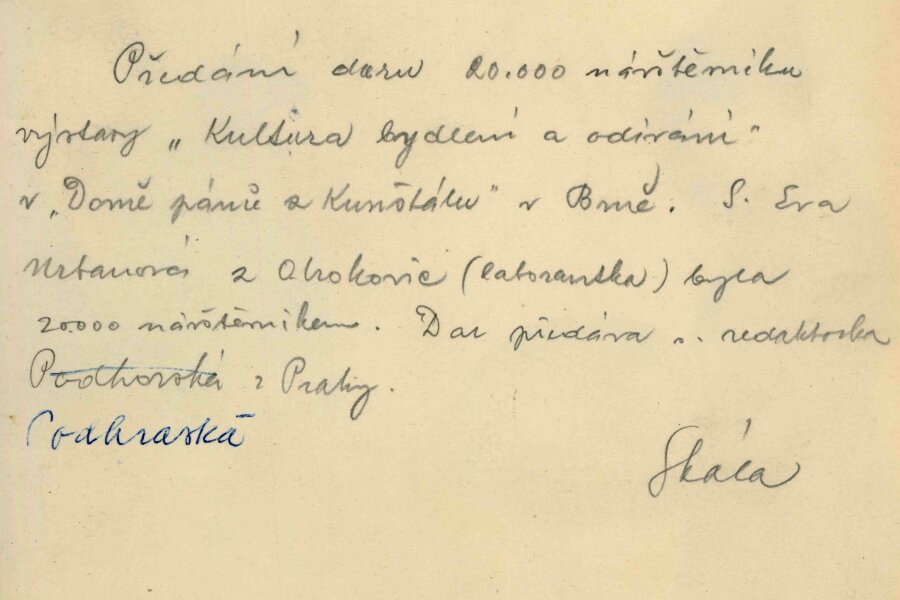 Předání daru 20.000 návštěvníku
výstavy „Kultura bydlení a odívání"
v „Domě pánů z Kunštátu" v Brně. S. Eva
Urbanová z Otrokovic (laborantka) byla
20.000 návštěvníkem. Dar předává s. redaktorka
Podhorská z Prahy.
Podhraská
Skála